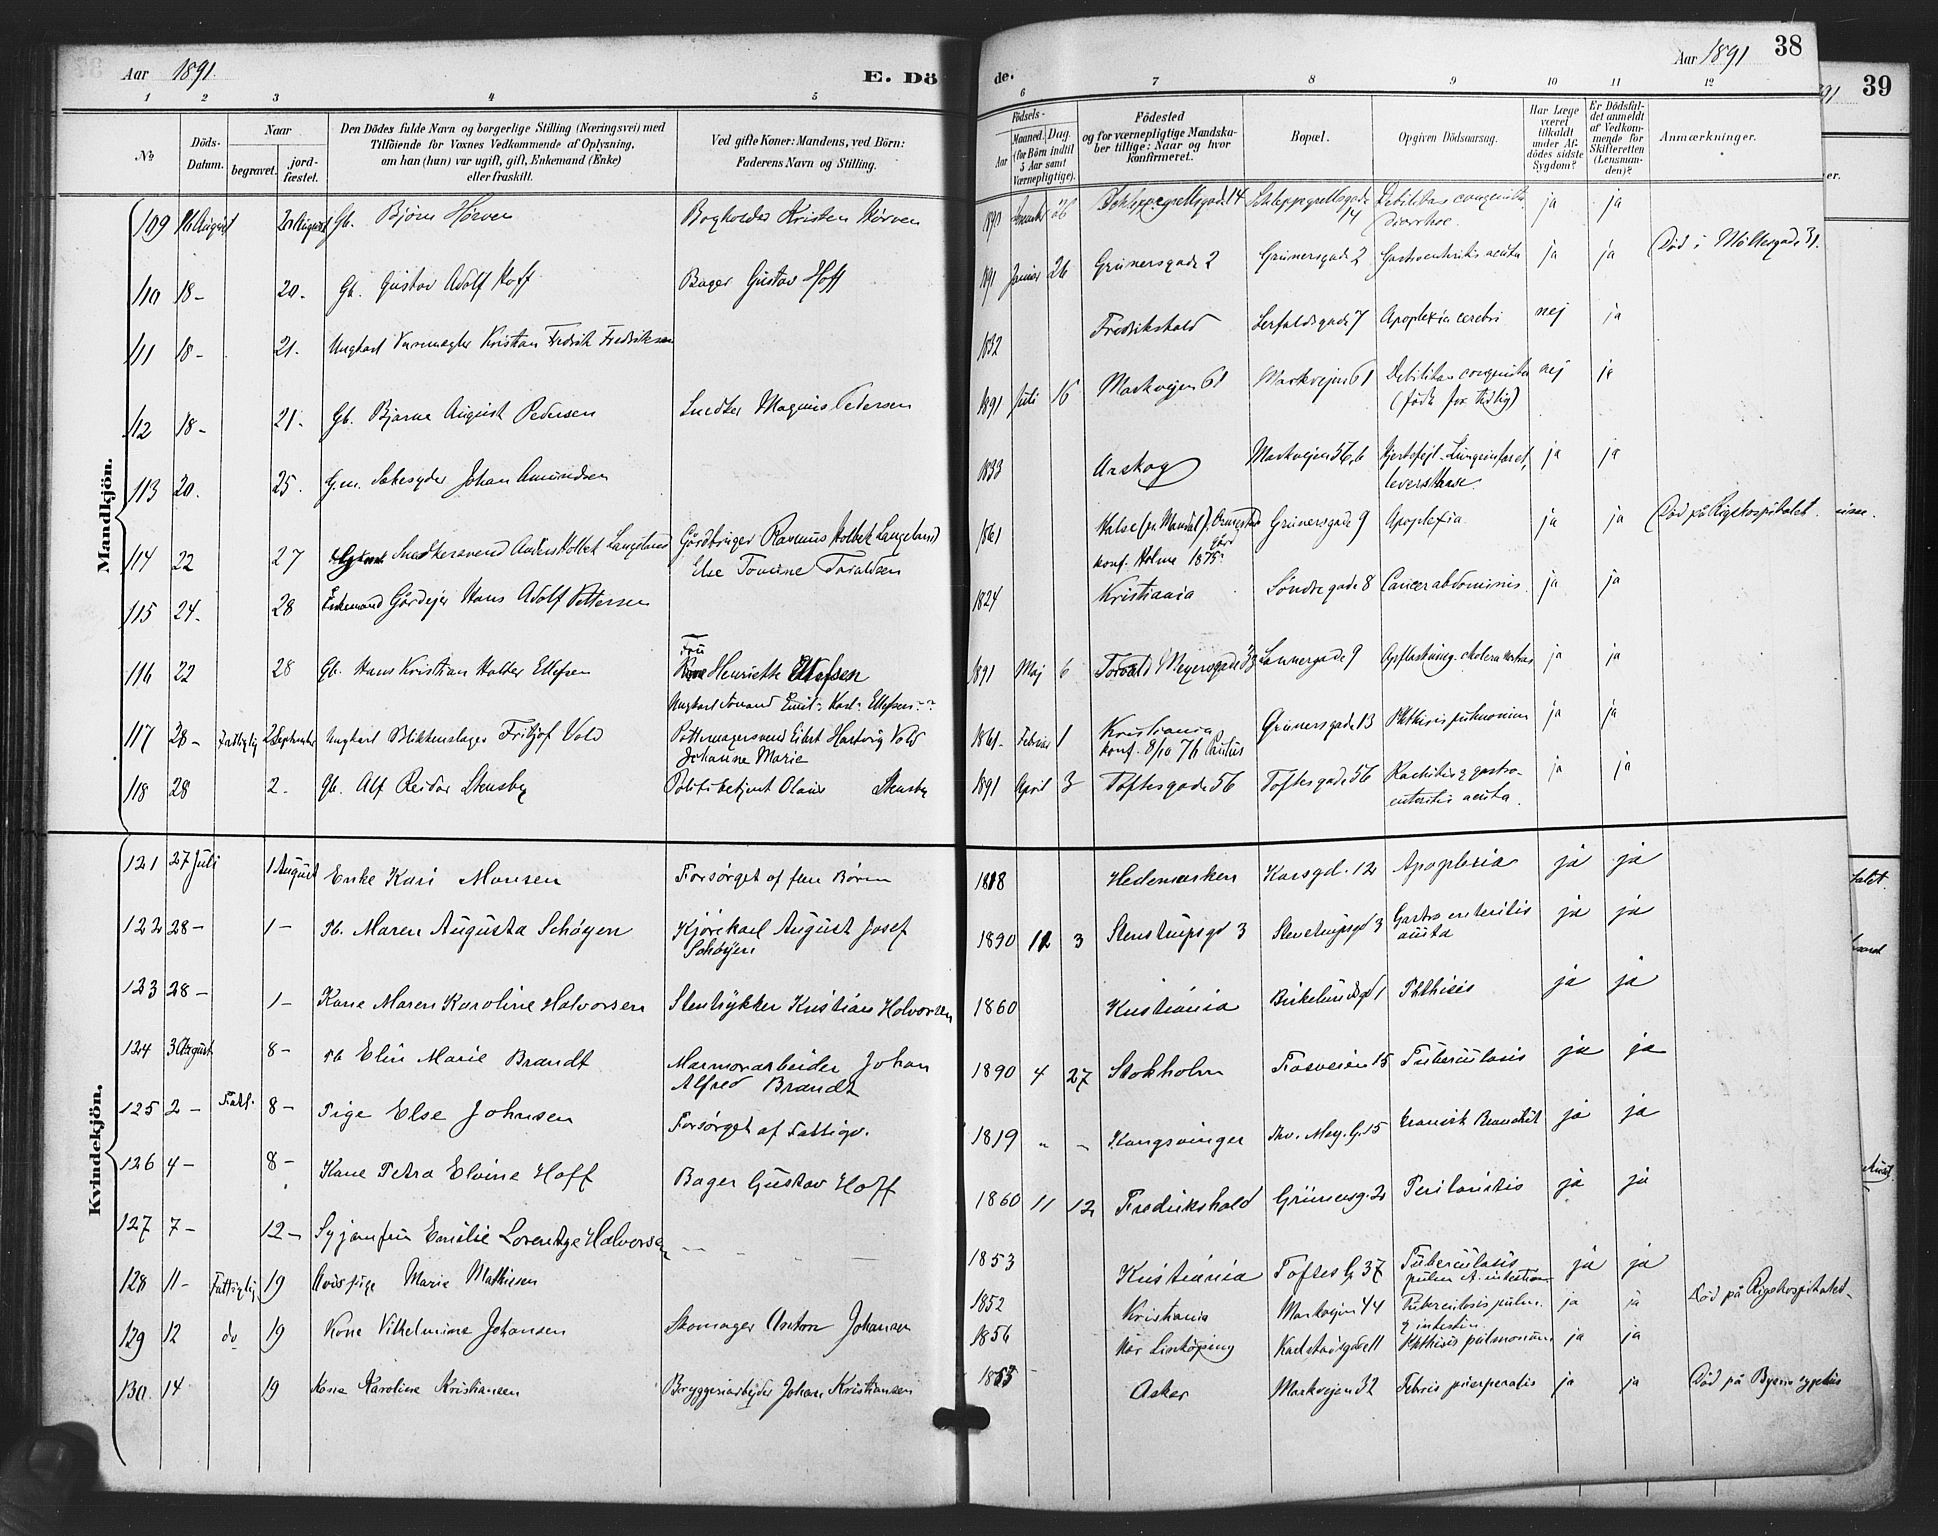 Aar 1891.
E. Dö
de.
Aar 1891
38
39
1 2 3 4 5 6 7 8 9 10 11 12
№
Döds-Datum.
Naar
begravet.
jord-fæstet.
Den Dödes fulde Navn og borgerlige Stilling (Næringsvei) med
Tilföiende for Voxnes Vedkommende af Oplysning,
om han (hun) var ugift, gift, Enkemand (Enke)
eller fraskilt.
Ved gifte Koner: Mandens, ved Börn:
Faderens Navn og Stilling.
Födsels-
Aar
Maaned. Dag.
(for Börn indtil
5 Aar samt
Værnepligtige).
Födested
og for værnepligtige Mandska-
ber tillige: Naar og hvor
konfirmeret.
Bopæl.
Opgiven Dödsaarsag.
Har Læge
været
tilkaldt
under Af-
dödes sidste
Sygdom?
Er Dödsfal-
det anmeldt
af Vedkom-
mende for
Skifteretten
(Lensman-
den)?
Anmærkninger.
Mandkjön.
109 August Gb. Bjørn Hørven Bogholder Kristen Hørven 1890 26 Schleppegrellsgade 14 Schleppegrellsgade 14 Debilitas congenita Diarrhoe. ja ja
110 18- 20. Gb. Gustav Adolf Hoff Bager Gustav Hoff 1891 Januar 26 Grünersgade 2 Grünersgade 2 Gastroenteritis acuta ja ja Død i Møllergade 31.
111 18- 21. Ungkarl Varemægler Kristian Fredrik Fredriksen 1832 Fredrikshald Lerfaldsgade 7 Apoplexia cerebri nej ja
112 18- 21- Gb. Bjarne August Pedersen Snedker Magnus Petersen 1891 Juli 16 Markvejen 61 Markvejen 61 Debilitas congenita (født for tidlig) nej ja
113 20. 25. G.m. Johan Amundsen 1833 Arskog Markvejen 56, b Hjertefejl. Lungeinfarct, ja ja
114 22 27 Snedkersvend Anders Holbek Langeland Gårdbruger Rasmus Holbek Langeland Else Tomine Toraldsen 1861 Halse (pr. Mandal), konf. Holme 1875. Grünersgade 9 Apoplexia ja ja Død på Rigshospitalet
115 24. 28 Enkemand Gårdejer Hans Adolf Pettersen 1824 Kristiania Søndregade 8 Cancer abdominis. ja ja
116 22 28 Gb. Hans Kristian Holter Ellefsen Fru Henriette Ellefsen Ungkarl Emil Karl Ellefsen 1891 Maj 6 Torvald Meyersgade 33 Lennergade 9 cholera nostras ja ja
117 28- Fattiglig 2 September Ungkarl Blikkenslager Fritjof Vold Pottemagersvend Eilert Hartvig Vold Johanne Marie 1861- Februar 1 Kristiania konf. 8/10 76 Paulus Grünersgade 13 Phthisis pulmonum ja ja
118 28 2. Gb. Alf Reidar Stensby Politibetjent Olaus Stensby 1891 April 3 Toftesgade 56 Toftesgade 56 Rachitis & gastro-enteritis acuta. ja ja
Kvindekjön.
121 27 Juli 1 August Enke Kari Monsen Forsørget af sine Børn 1818 Hedemarken Korsgd. 12 Apoplexia ja ja
122 28- 1- Pb. Maren Augusta Schøyen Kjørekarl August Josef Schøyen 1890 12 3 Stenstrupsgd 3 Stenstrupsgd 3 Gastro enteritis acuta ja ja
123 28- 1- Kone Maren Karoline Halvorsen Stentrykker Kristian Halvorsen 1860 Kristiania Birkelundsgd 1 Phthisis ja ja
124 3 August 8- Pb Elin Marie Brandt Marmorarbeider Johan Alfred Brandt 1890 4 27 Stokholm Fosveien 15 Tuberculosis ja ja
125 2- Fattl. 8- Pige Else Johnsen Forsørget af Fattigv. 1819 " - Kongsvinger Thv. Mey. G. 15 kronisk Bronchit ja ja
126 4- 8- Kone Petra Elvine Hoff Bager Gustav Hoff 1860 11 12 Fredrikshald Grünersg. 2 Peritonitis ja ja
127 7- 12- Syjomfru Emilie Lorentze Halvorsen 1853 Kristiania Toftes G. 37 Tuberculosis pulm. et. intestin ja ja
128 11- Fattiglig 19 Avispige Marie Mathisen 1852 Kristiania Markvejen 44 Tuberculosis pulm. & intestin. ja ja Død på Rigshospitalet-
129 12 do 19 Kone Vilhelmine Johansen Skomager Anton Johansen 1856 Nær Linköping Karlstadsgade 11 Phthisis pulmonum ja ja
130 14 19 Kone Karoline Kristiansen Bryggeriarbejder Johan Kristiansen 1855 - Asker Markvejen 32 Febris puerperalis ja ja Død på Byens sygehus